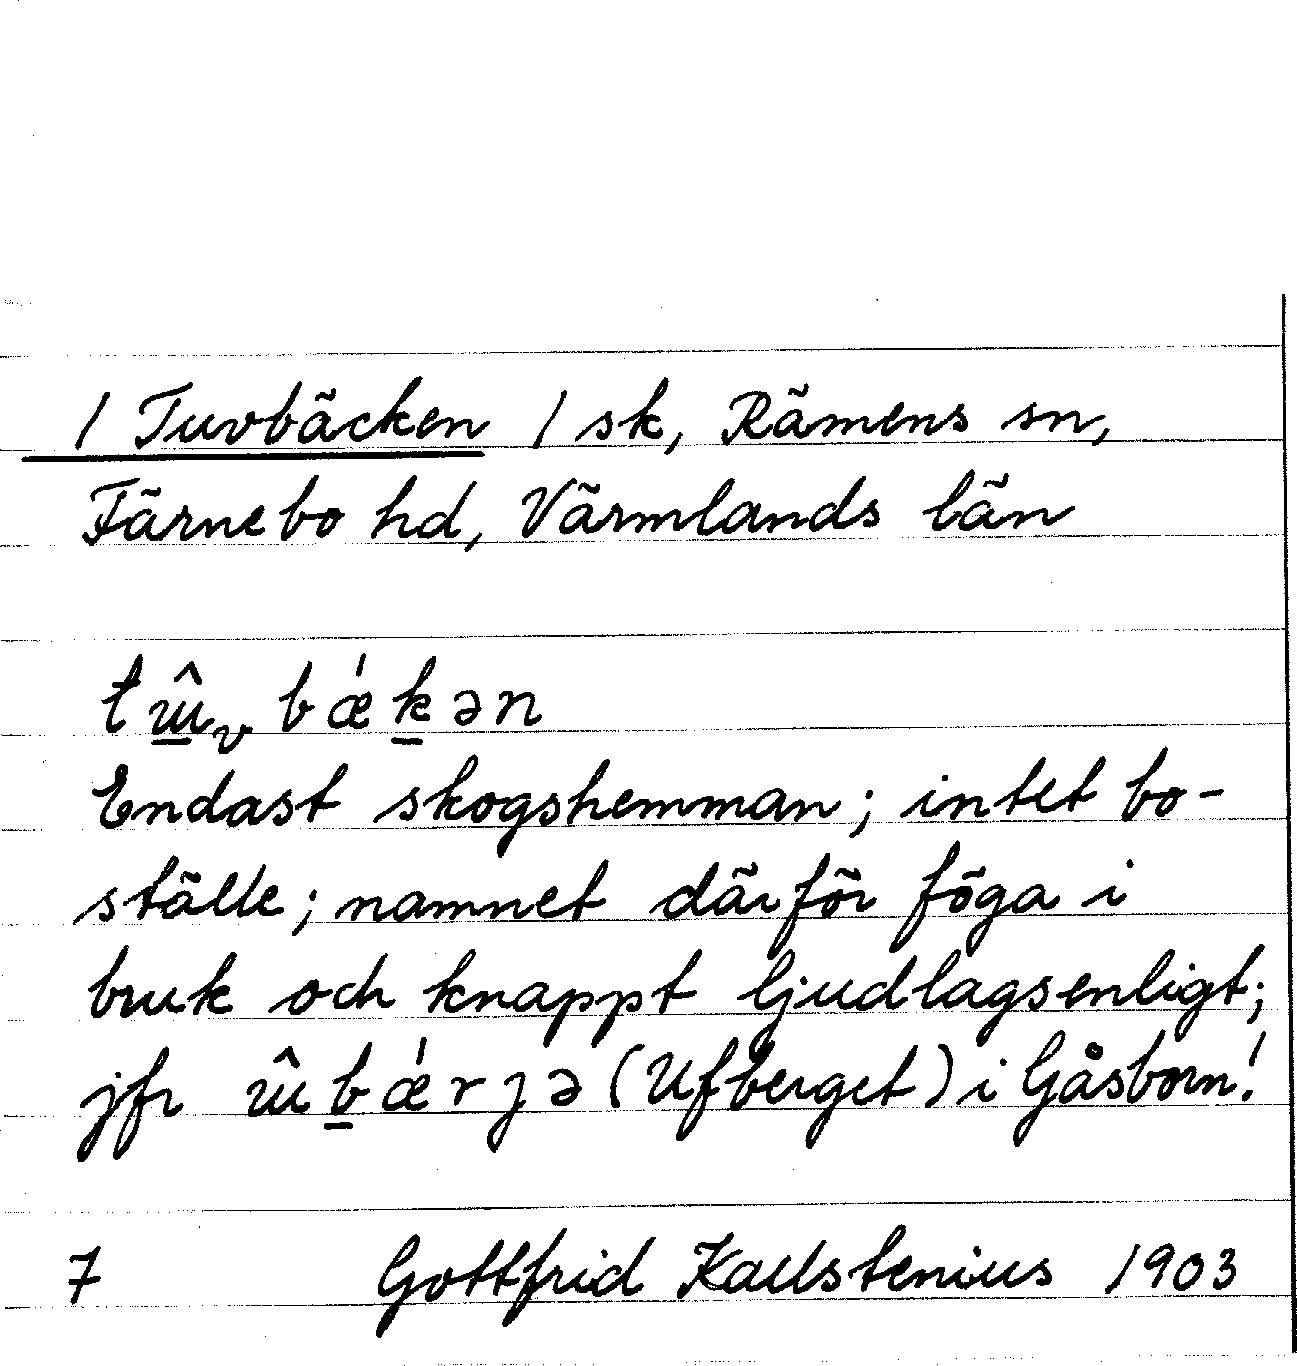 / Tuvbäcken / sk, Rämens sn,
Färnebo hd, Värmlands län
tɯ̲̂ᵥ bǽk̲ən
Endast skogshemman; intet bo-
ställe; namnet därför föga i
bruk och knappt ljudlagsenligt;
jfr ɯ̂b̲ǽrȷə (Ufberget) i Gåsborn!
7 Gottfrid Kallstenius 1903